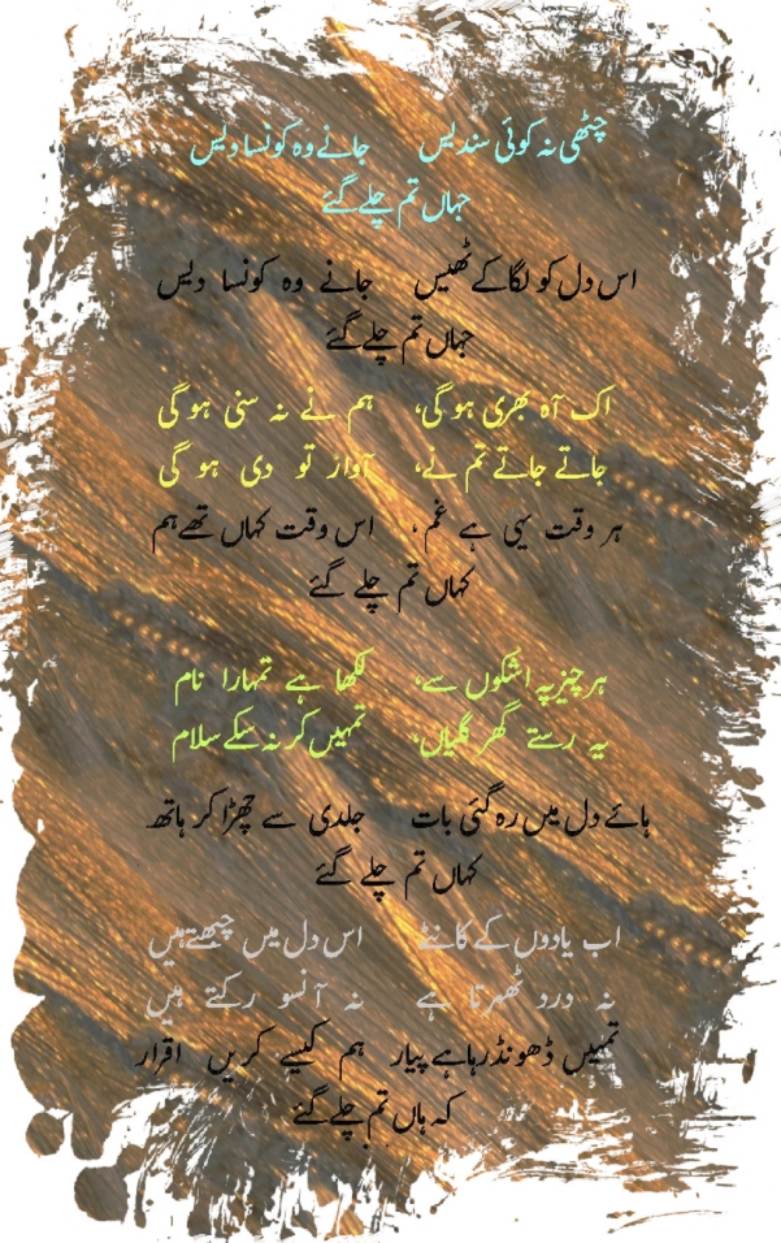 چٹھی نہ کوئی سندیس جانے وہ کونسا دیس
جہاں تم چلے گئے
اس دل کو لگا کے ٹھیس جانے وہ کونسا دیس
جہاں تم چلے گئے
اک آہ بھری ہو گی، ہم نے نہ سنی ہو گی
جاتے جاتے تم نے، آواز تو دی ہو گی
ہر وقت یہی ہے غم، اس وقت کہاں تھے ہم
کہاں تم چلے گئے
ہر چیز پہ اشکوں سے، لکھا ہے تمہارا نام
یہ رستے گھر گلیاں، تمہیں کر نہ سکے سلام
ہائے دل میں رہ گئی بات جلدی سے چھڑا کر ہاتھ
کہاں تم چلے گئے
اب یادوں کے کانٹے اس دل میں چبھتے ہیں
نہ درد ٹھہرتا ہے نہ آنسو رکتے ہیں
تمہیں ڈھونڈ رہا ہے پیار ہم کیسے کریں اقرار
کہ ہاں تم چلے گئے